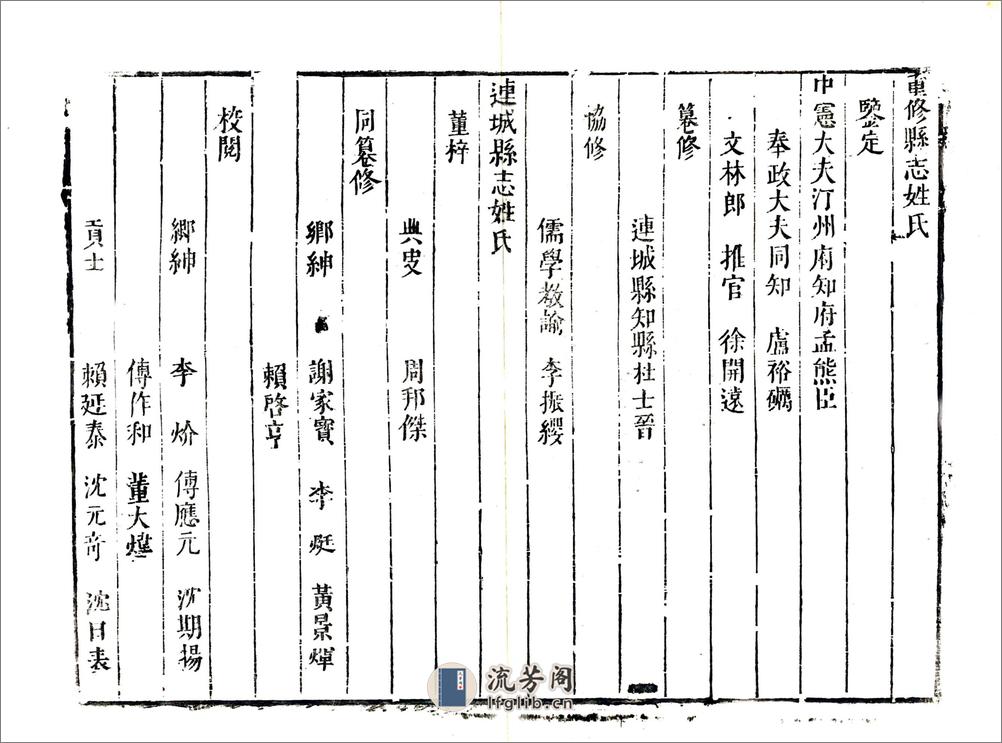 重修縣志姓氏
鑒定
中憲大夫汀州府知府孟熊臣
奉政大夫同知 盧裕礪
文林郎 推官 徐開遠
纂修
連城縣知縣杜士晉
協修
儒學教諭 李振纓
連城縣志姓氏
董梓
典史 周邦傑
同纂修
鄉紳 謝家寶 李𤆥 黃景煇
賴啓亨
校閱
鄉紳 李炌 傅應元 沈期揚
傅作和 董大
貢士 賴延泰 沈元奇 沈日表
流芳阁
lfglib.cn